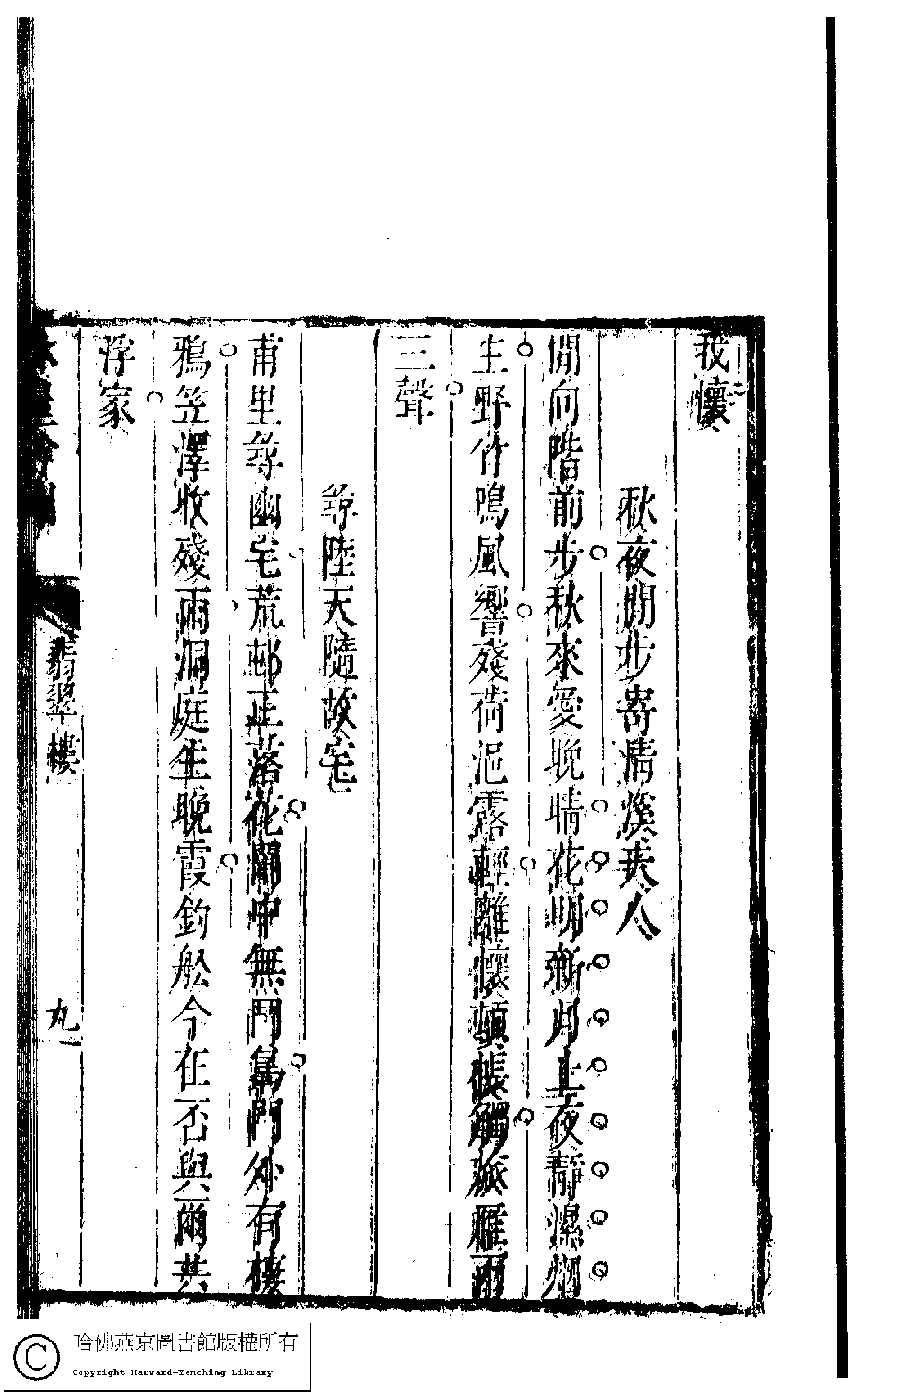 我懷
秋夜閒步寄清溪
閒向階前步秋來愛晚晴花明新月上夜靜濕烟
生野竹鳴風響殘荷浥露輕離懷頓悵觸旅雁兩
三聲
尋陸天隨故宅
甫里尋幽宅荒邨正落花闌中無鬥鴨門外有棲
鴉笠澤收殘雨洞庭生晚霞釣舩今在否與爾共
浮家
翡翠樓
九
哈佛燕京圖書館版權所有
Copyright Harvard-Yenching Library